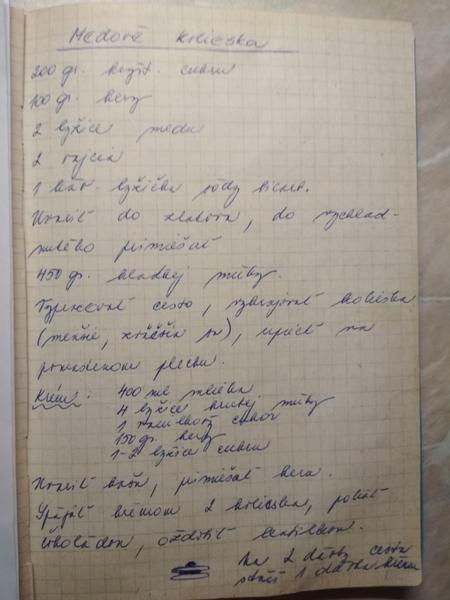 Medové kolieska
200 gr. kryšt. cukru
100 gr. hery
2 lyžice medu
2 vajcia
1 káv. lyžička sódy bicarb.
Uvariť do zlatova, do vychlad-
nutého primiešať
450 gr. hladkej múky.
Vypracovať cesto, vykrajovať kolieska
(menšie, zväčšia sa), upiecť na
pomastenom plechu.
Krém: 400 ml mlieka
4 lyžice hrubej múky
1 vanilkový cukor
150 gr. hery
1-2 lyžice cukru
Uvariť kašu, primiešať hera.
Spájať krémom 2 kolieska, poliať
čokoládou, ozdobiť lentilkou.
Na 2 dávky cesta
stačí 1 dávka krému